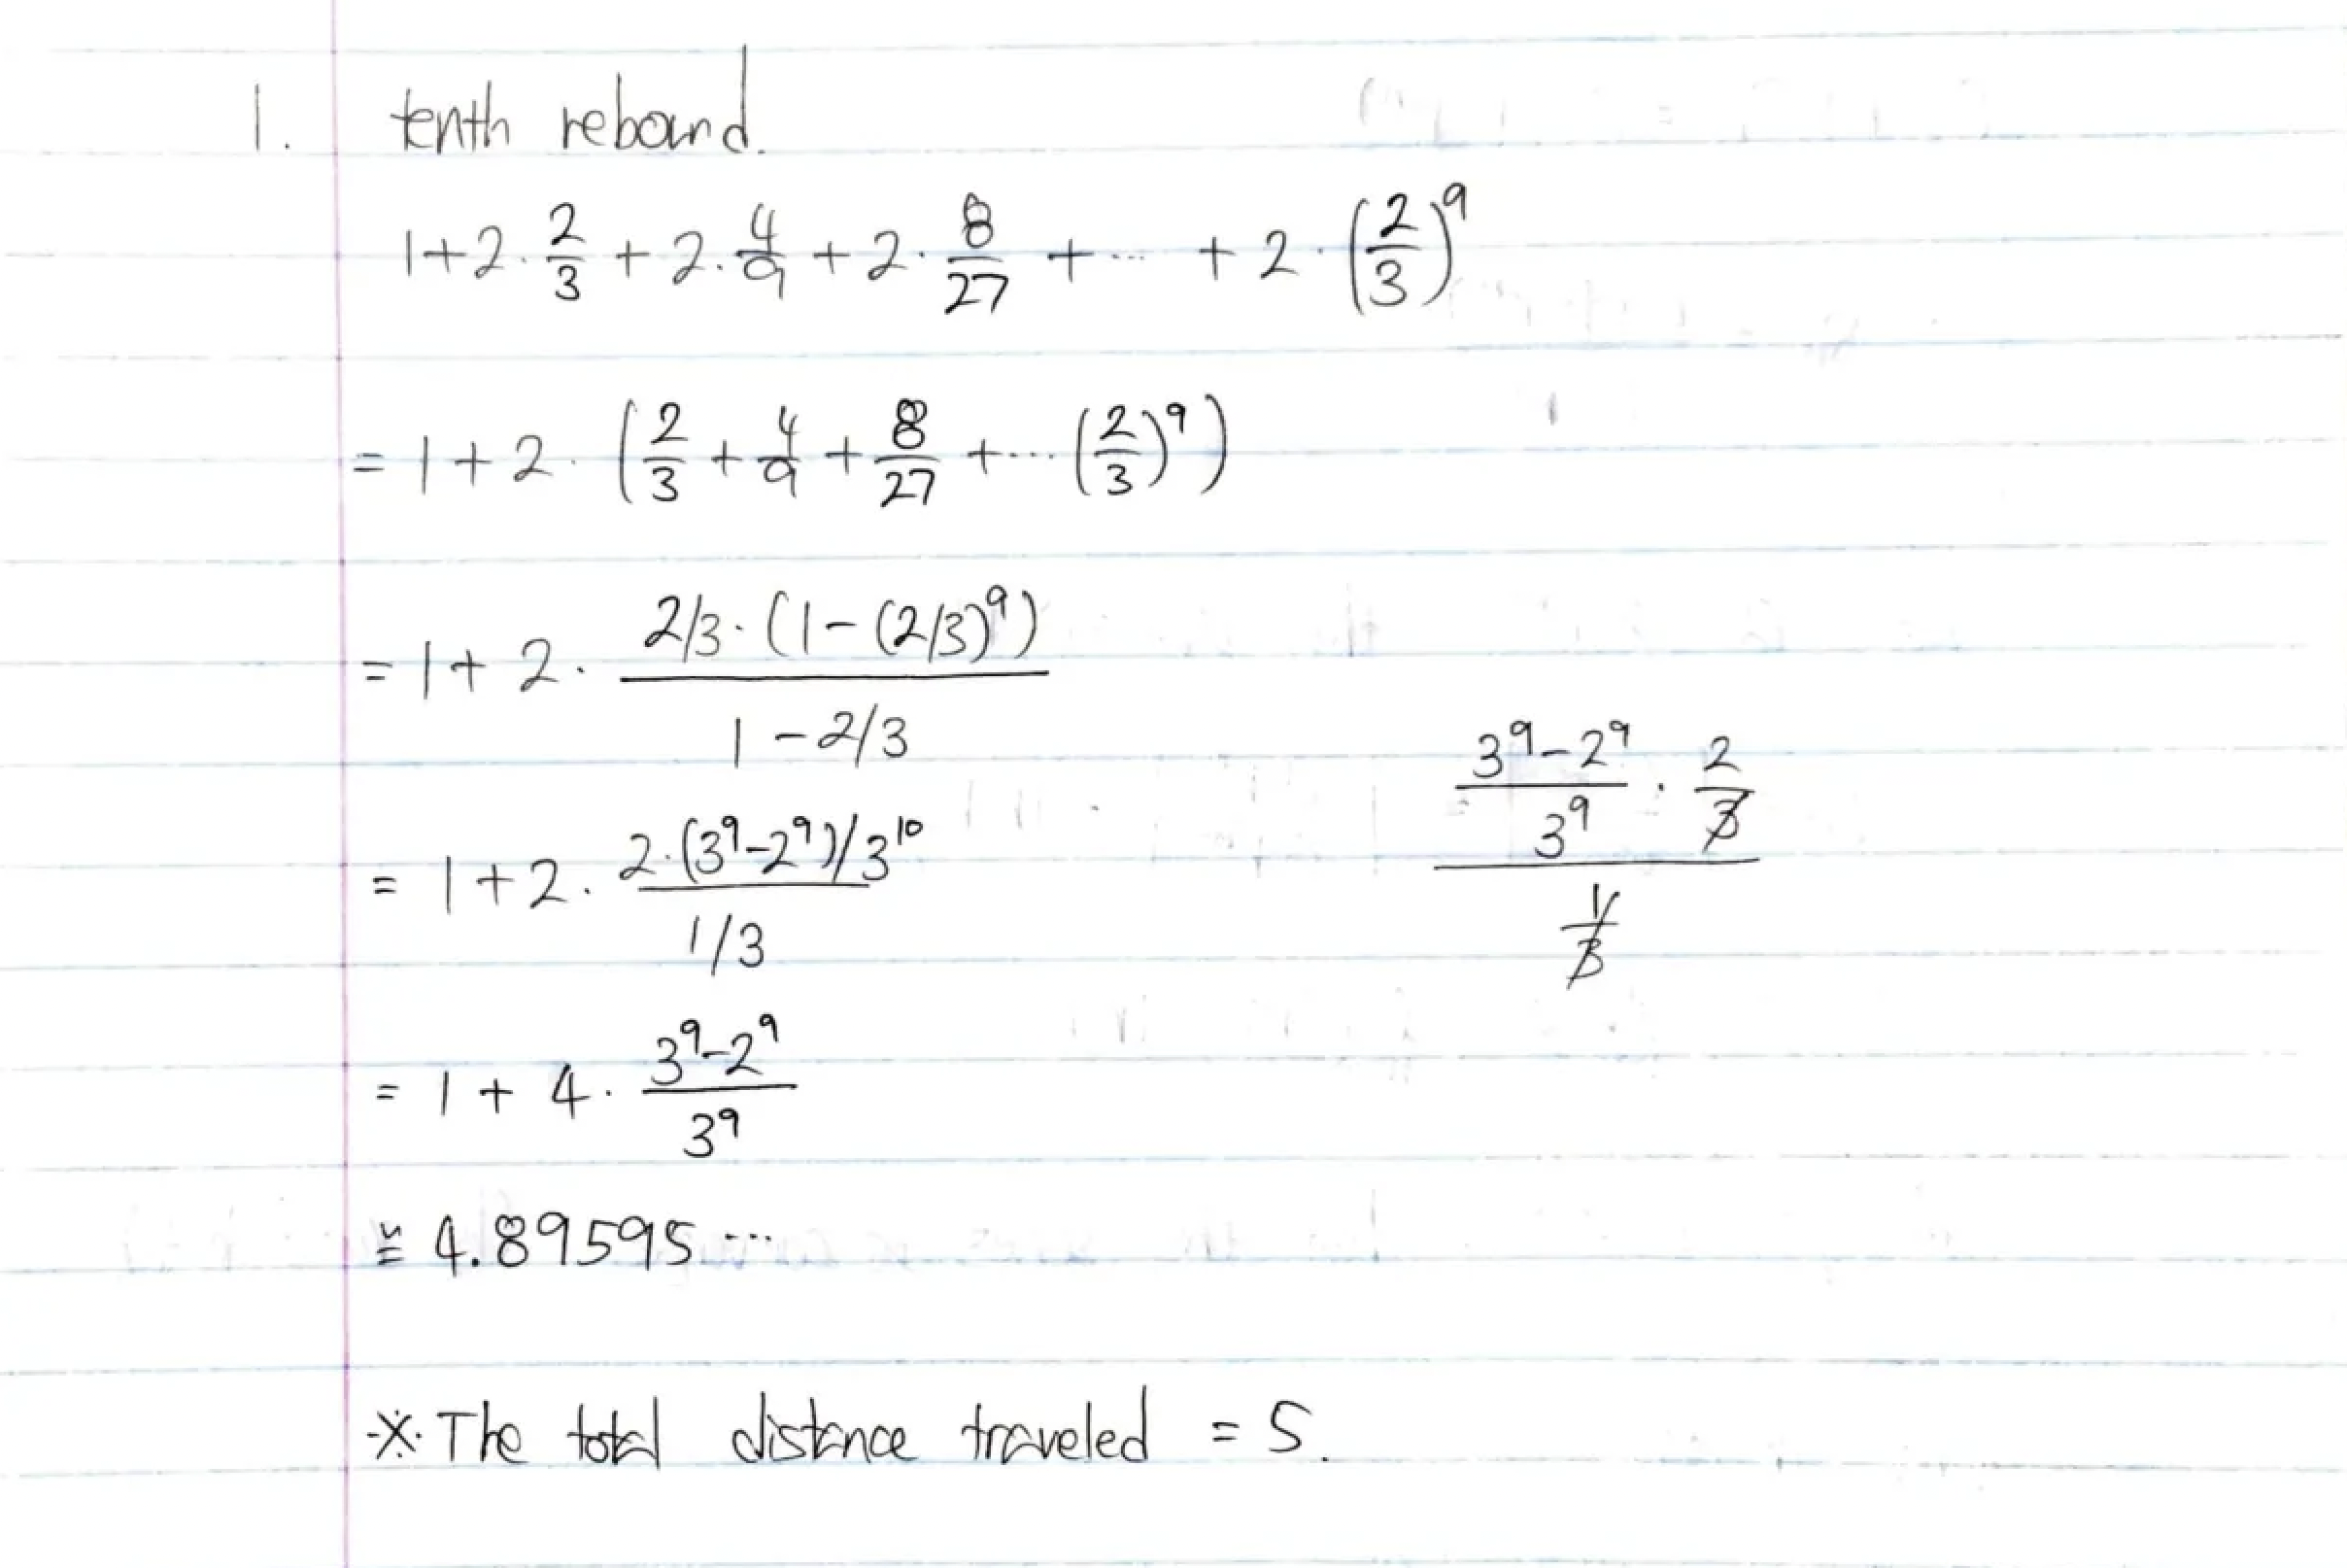 1. tenth rebound.
1+2·2/3+2·4/9+2·8/27+···+2·(2/3)^9
=1+2·(2/3+4/9+8/27+···(2/3)^9)
=1+2·(2/3·(1-(2/3)^9))/(1-2/3)
=1+2·(2·(3^9-2^9)/3^10)/(1/3)
((3^9-2^9)/3^9·2/3)/(1/3)
=1+4·(3^9-2^9)/3^9
≅4.89595···
※The total distance traveled = 5.